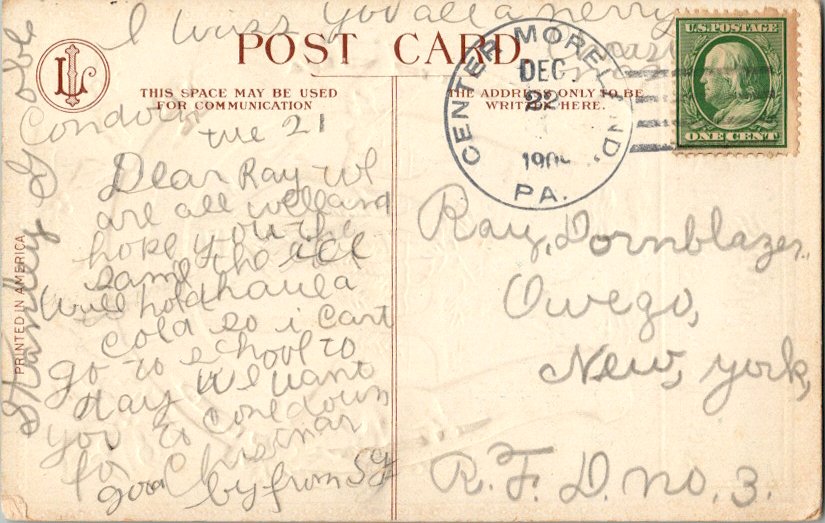 I wiss you all a merry
POST CARD
THIS SPACE MAY BE USED
FOR COMMUNICATION
THE ADDRESS ONLY TO BE
WRITTEN HERE.
CENTER MORELAND,
DEC
22
190
PA.
U.S. POSTAGE
ONE CENT
tue 21
Dear Ray wl
are all well and
hope you the
same the ice
will hold have a
cold so i cant
go to school to
day we want
you to come down
for Chrismas
good by from SG
Stanley G
PRINTED IN AMERICA
Ray, Dornblazer.,
Owego,
New, york,
R. F. D. no. 3.